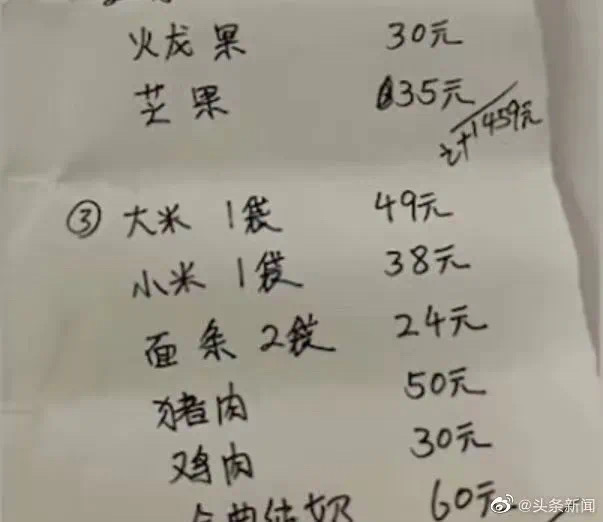 火龙果 30元
芒果 35元
计1459元
③大米 1袋 49元
小米 1袋 38元
面条 2袋 24元
猪肉 50元
鸡肉 30元
金典纯奶 60元
@头条新闻